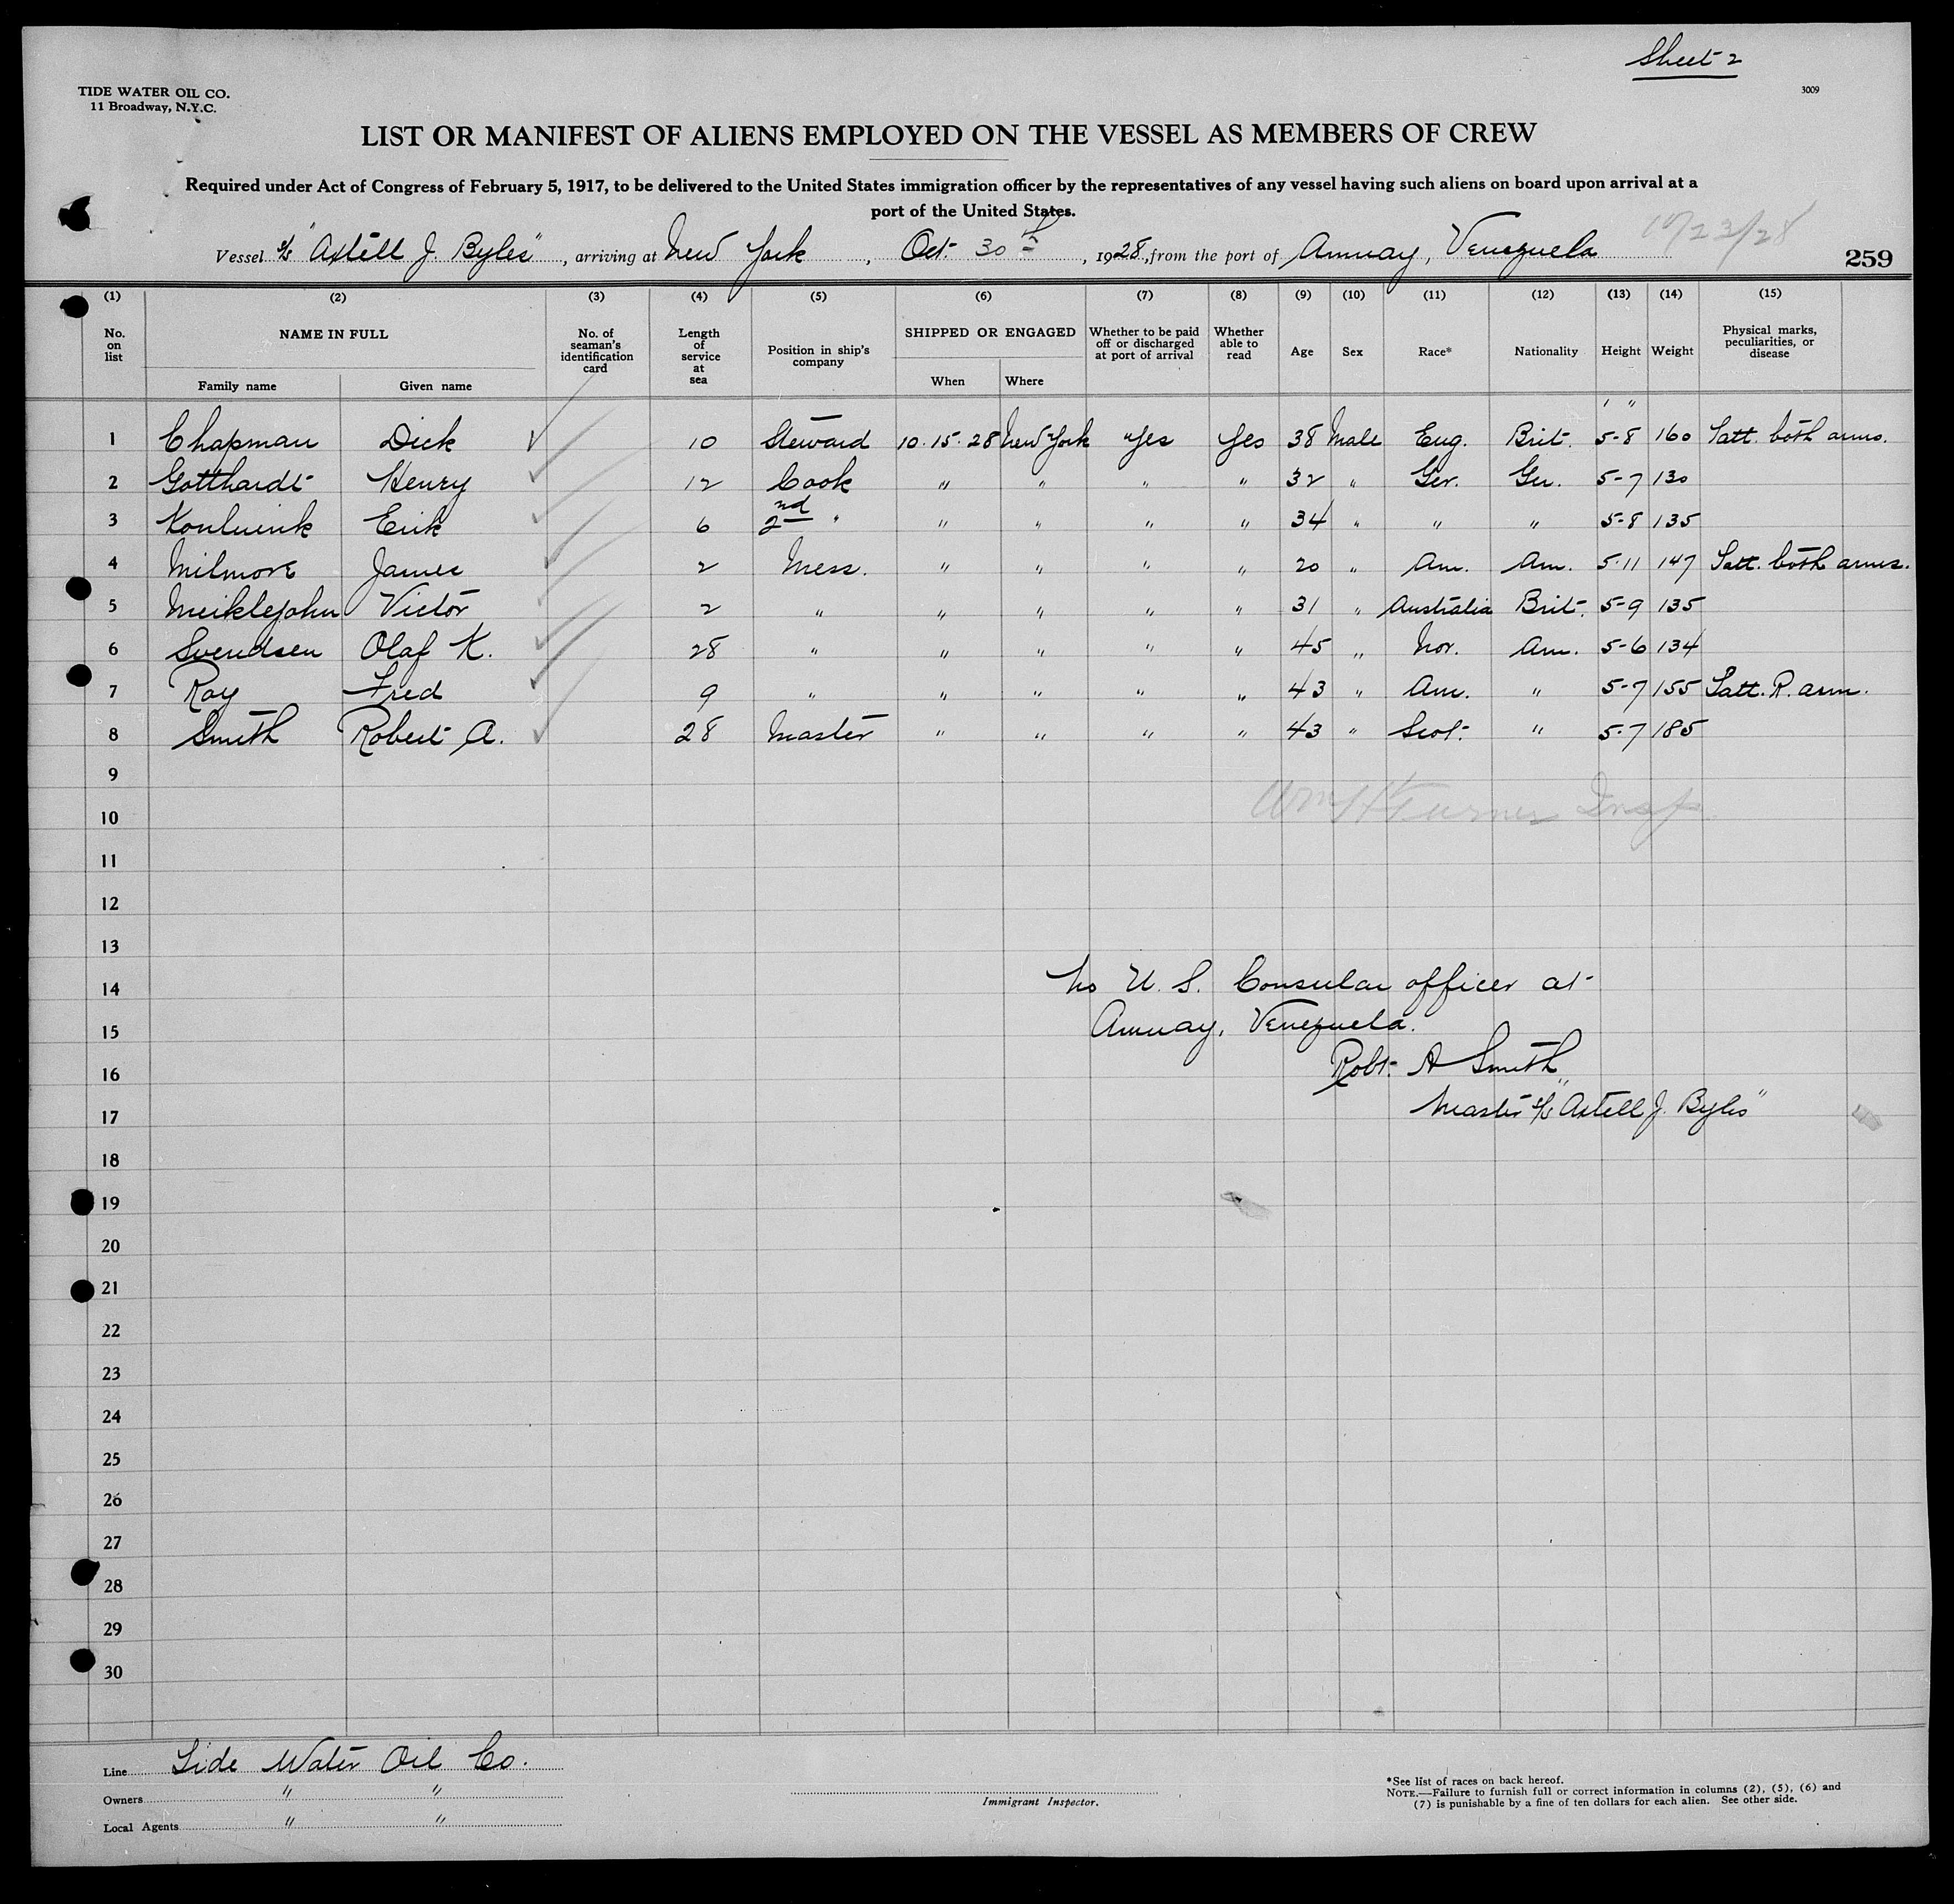 Sheet 2
TIDE WATER OIL CO.
11 Broadway, N.Y.C.
3009
LIST OR MANIFEST OF ALIENS EMPLOYED ON THE VESSEL AS MEMBERS OF CREW
Required under Act of Congress of February 5, 1917, to be delivered to the United States immigration officer by the representatives of any vessel having such aliens on board upon arrival at a
port of the United States.
Vessel s/s "Axtell J. Byles", arriving at New York, Oct. 30th, 1928, from the port of Amuay, Venezuela 10/23/28
259
(1) (2) (3) (4) (5) (6) (7) (8) (9) (10) (11) (12) (13) (14) (15)
No. on list NAME IN FULL Family name Given name No. of seaman's identification card Length of service at sea Position in ship's company SHIPPED OR ENGAGED When Where Whether to be paid off or discharged at port of arrival Whether able to read Age Sex Race* Nationality Height Weight Physical marks, peculiarities, or disease
' "
1 Chapman Dick 10 Steward 10.15.28 New York Yes Yes 38 Male Eng. Brit. 5-8 160 Tatt. both arms.
2 Gotthardt Henry 12 Cook " " " " 32 " Ger. Ger. 5-7 130
3 Erik 6 2nd " " " " " 34 " " " 5-8 135
4 Milmore James 2 Mess. " " " " 20 " Am. Am. 5-11 147 Tatt. both arms.
5 Meiklejohn Victor 2 " " " " " 31 " Australia Brit. 5-9 135
6 Svendsen Olaf K. 28 " " " " " 45 " Nor. Am. 5-6 134
7 Ray Fred 9 " " " " " 43 " Am. " 5-7 155 Tatt. R. arm.
8 Smith Robert A. 28 Master " " " " 43 " Scot. " 5-7 185
9
Wm H Turner Insp.
10
11
12
13
14 No U.S. Consular officer at
15 Amuay, Venezuela.
16 Robt. A Smith
17 Master s/s "Axtell J. Byles"
18
19
20
21
22
23
24
25
26
27
28
29
30
Line Tide Water Oil Co.
Owners " "
Local Agents " "
Immigrant Inspector.
*See list of races on back hereof.
NOTE.—Failure to furnish full or correct information in columns (2), (5), (6) and
(7) is punishable by a fine of ten dollars for each alien. See other side.